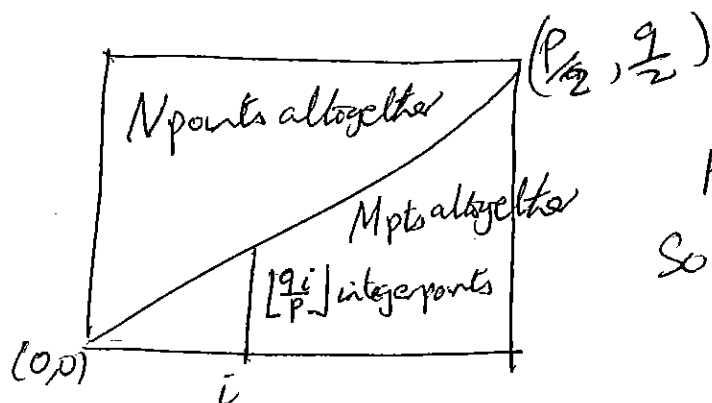 (p/2, q/2)
N points altogether
Mpts altogether
So
⌊qi/p⌋ integerpoints
(0,0)
i